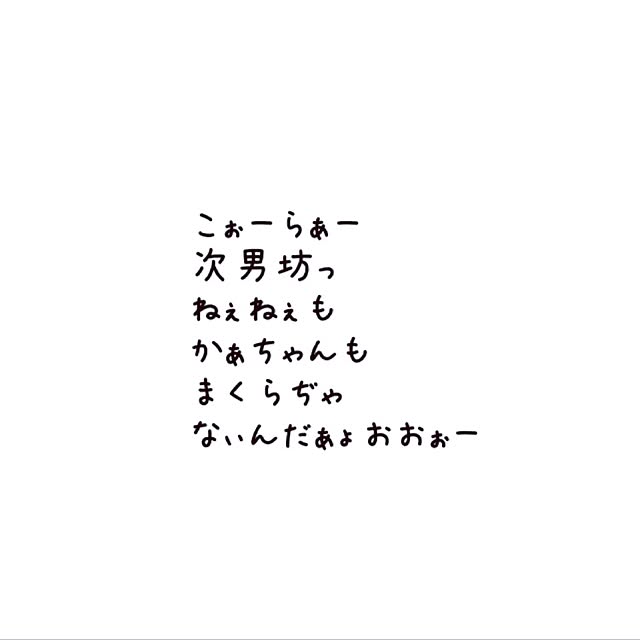 こぉーらぁー
次男坊っ
ねぇねぇも
かぁちゃんも
まくらぢゃ
なぃんだぁょおおぉー